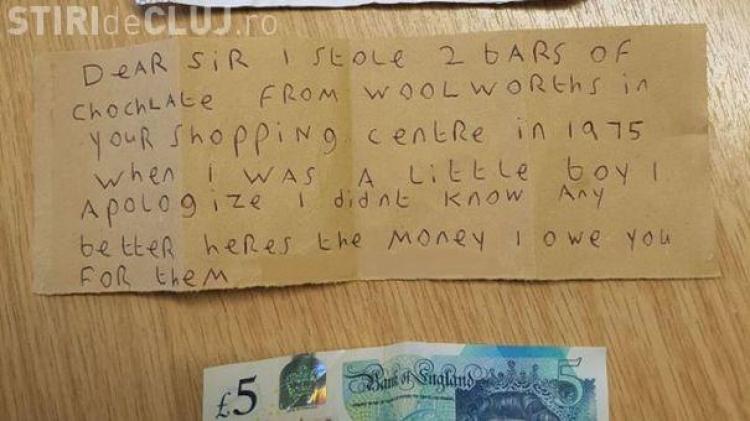 STIRIdeCLUJ.ro
DEAR SIR I STOLE 2 bARS OF
ChochLAte FROM WOOLWORths in
YOUR Shopping centRe in 1975
when I WAS A LittLe boy I
APoLogize I didnt KNOW ANy
betteR heRes the MONEy I OWE you
FOR theM
£5 Bank of England 5